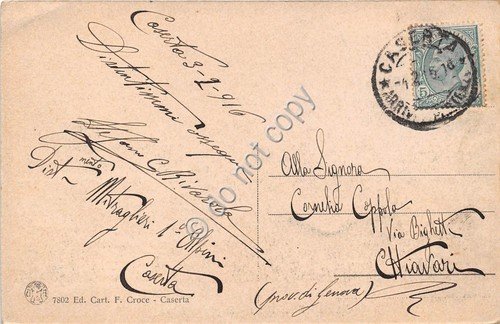 Caserta 3-2-916
Distintissimi ossequi
Stefano C. Rivarola
Dist-mento Mitraglieri 1° Alpini
Caserta
CASERTA
4.2.16
ARRIVI
5
Alla Signora
Cornelia Coppola
Via Bighetti
Chiavari
(prov. di Genova)
7802 Ed. Cart. F. Croce - Caserta
do not copy